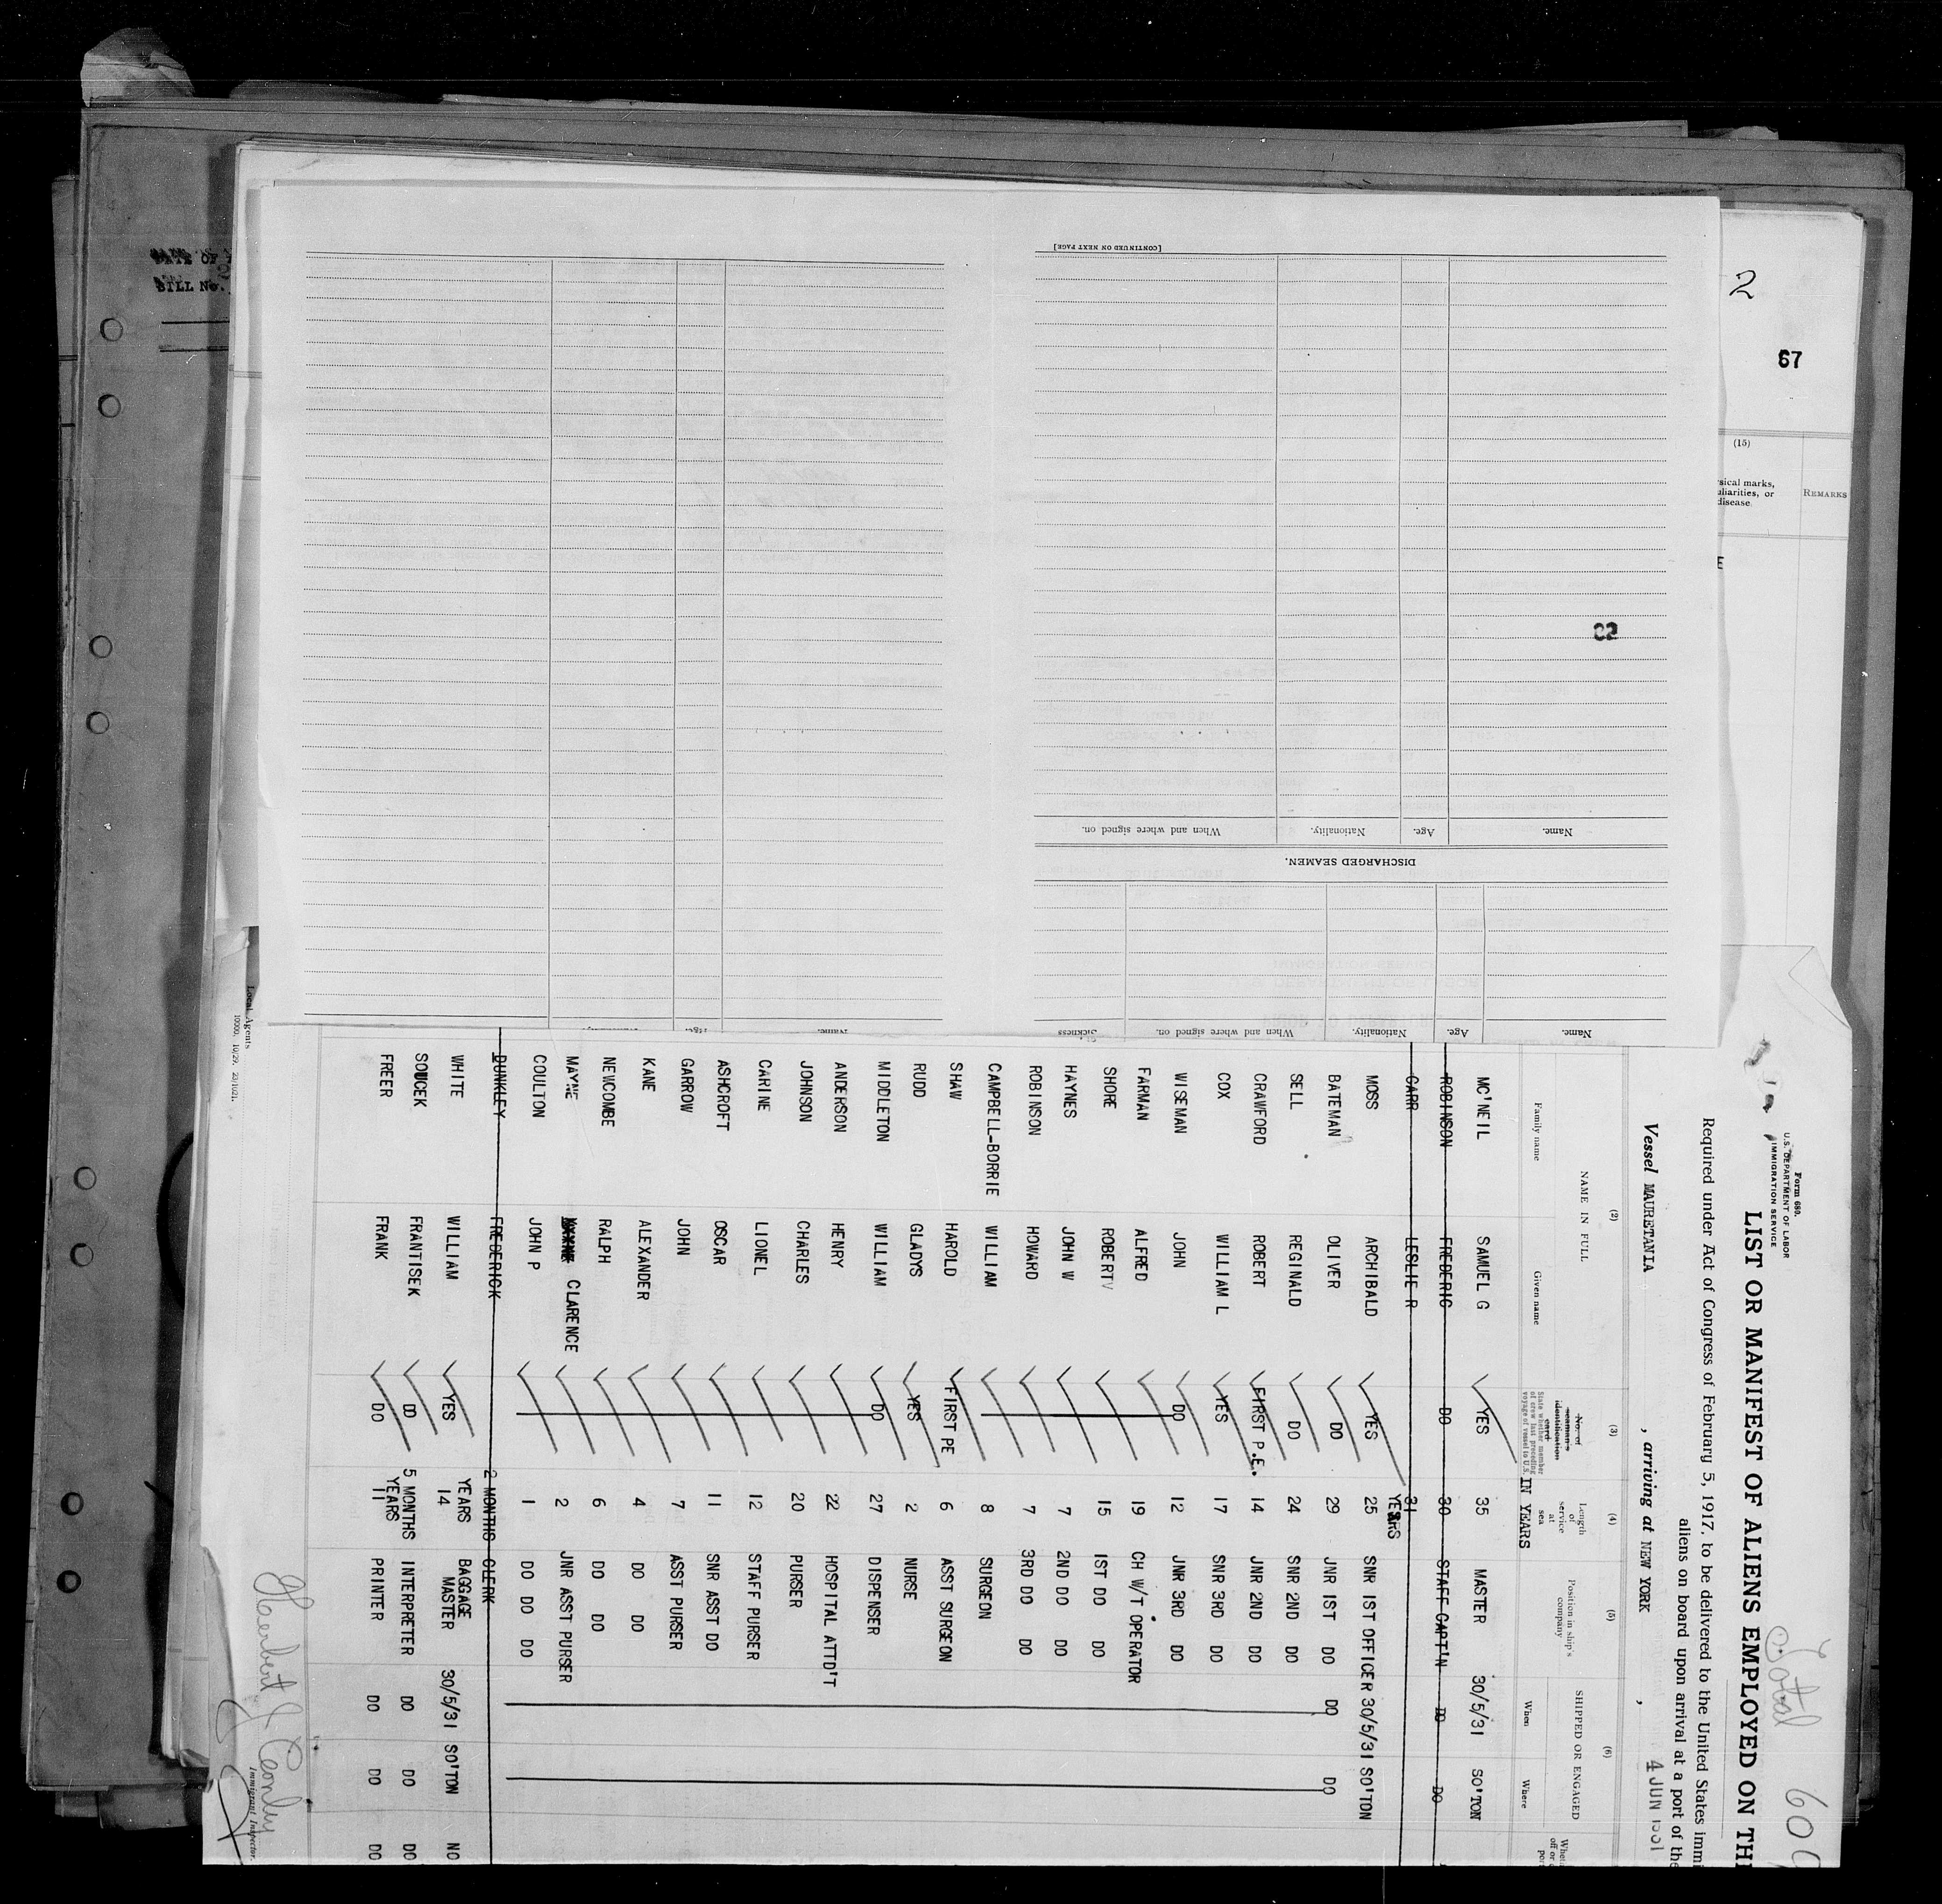 2
67
(15)
REMARKS
BILL No.
[CONTINUED ON NEXT PAGE]
Name.
Age.
Nationality.
When and where signed on.
DISCHARGED SEAMEN.
Name.
Age.
Nationality.
When and where signed on.
Sickness
Total 609
Form 689.
U.S. DEPARTMENT OF LABOR
IMMIGRATION SERVICE
LIST OR MANIFEST OF ALIENS EMPLOYED ON TH
Required under Act of Congress of February 5, 1917, to be delivered to the United States immi
aliens on board upon arrival at a port of the
Vessel MAURETANIA , arriving at NEW YORK , 4 JUN 1931
(2) (3) (4) (5) (6)
NAME IN FULL
Family name Given name
No. of seaman's identification card
State whether member of crew last preceding voyage of vessel to U.S.
Length of service at sea IN YEARS
Position in ship's company
SHIPPED OR ENGAGED
When Where
MC'NEIL SAMUEL G YES 35 MASTER 30/5/31 SO'TON
ROBINSON FREDERIC DO 30 STAFF CAPT'N DO DO
CARR LESLIE R 31
YEARS
MOSS ARCHIBALD YES 25 SNR 1ST OFFICER 30/5/31 SO'TON
BATEMAN OLIVER DO 29 JNR 1ST DO DO DO
SELL REGINALD DO 24 SNR 2ND DO
CRAWFORD ROBERT FIRST P.E. 14 JNR 2ND DO
COX WILLIAM L YES 17 SNR 3RD DO
WISEMAN JOHN DO 12 JNR 3RD DO
FARMAN ALFRED 19 CH W/T OPERATOR
SHORE ROBERT V 15 1ST DO DO
HAYNES JOHN W 7 2ND DO DO
ROBINSON HOWARD 7 3RD DO DO
CAMPBELL-BORRIE WILLIAM 8 SURGEON
SHAW HAROLD FIRST PE 6 ASST SURGEON
RUDD GLADYS YES 2 NURSE
MIDDLETON WILLIAM DO 27 DISPENSER
ANDERSON HENRY 22 HOSPITAL ATTD'T
JOHNSON CHARLES 20 PURSER
CARINE LIONEL 12 STAFF PURSER
ASHCROFT OSCAR 11 SNR ASST DO
GARROW JOHN 7 ASST PURSER
KANE ALEXANDER 4 DO DO
NEWCOMBE RALPH 6 DO DO
MAYNE CLARENCE 2 JNR ASST PURSER
COULTON JOHN P 1 DO DO DO
DUNKLEY FREDERICK 2 MONTHS CLERK
WHITE WILLIAM YES YEARS 14 BAGGAGE MASTER 30/5/31 SO'TON NO
SOUCEK FRANTISEK DO 5 MONTHS INTERPRETER DO DO DO
FREER FRANK DO YEARS 11 PRINTER DO DO DO
Immigrant Inspector.
Local Agents